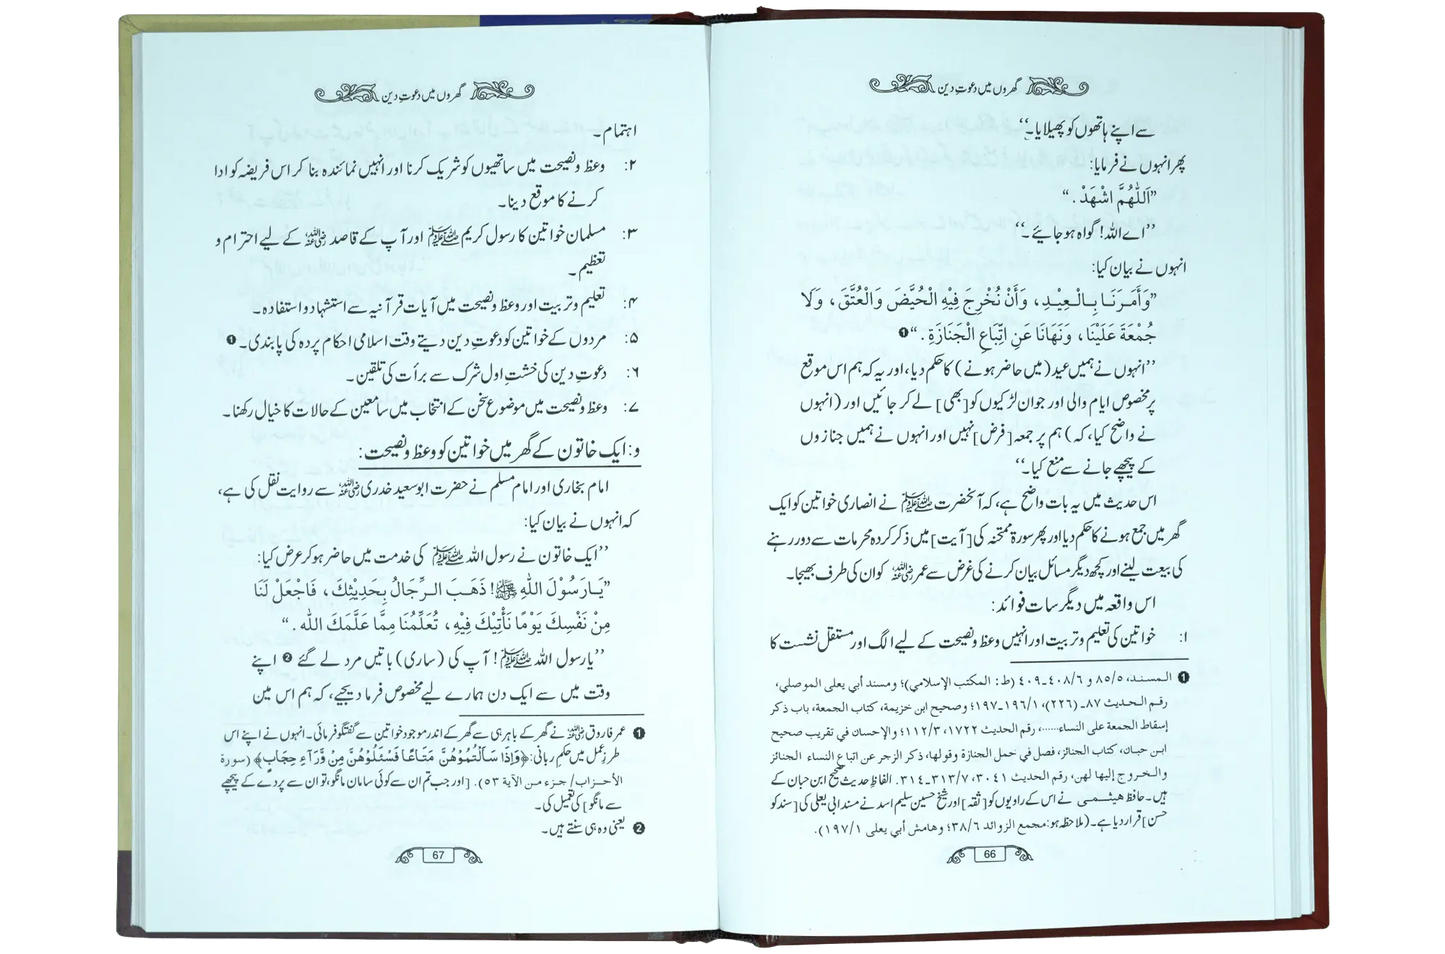 گھروں میں دعوتِ دین
سے اپنے ہاتھوں کو پھیلایا۔‘‘
پھر انہوں نے فرمایا:
”اَللّٰهُمَّ اشْهَدْ.“
’’اے اللہ! گواہ ہو جائیے۔‘‘
انہوں نے بیان کیا:
”وَأَمَرَنَا بِالْعِيْدِ، وَأَنْ نُخْرِجَ فِيْهِ الْحُيَّضَ وَالْعُتَّقَ، وَلَا
جُمْعَةَ عَلَيْنَا، وَنَهَانَا عَنِ اتِّبَاعِ الْجَنَازَةِ.“❶
’’انہوں نے ہمیں عید (میں حاضر ہونے) کا حکم دیا، اور یہ کہ ہم اس موقع
پر مخصوص ایام والی اور جوان لڑکیوں کو [بھی] لے کر جائیں اور (انہوں
نے واضح کیا، کہ) ہم پر جمعہ [فرض] نہیں اور انہوں نے ہمیں جنازوں
کے پیچھے جانے سے منع کیا۔‘‘
اس حدیث میں یہ بات واضح ہے، کہ آنحضرت ﷺ نے انصاری خواتین کو ایک
گھر میں جمع ہونے کا حکم دیا اور پھر سورۃ ممتحنہ کی [آیت] میں ذکر کردہ محرمات سے دور رہنے
کی بیعت لینے اور کچھ دیگر مسائل بیان کرنے کی غرض سے عمر رضی اللہ عنہ کو ان کی طرف بھیجا۔
اس واقعہ میں دیگر سات فوائد:
۱: خواتین کی تعلیم و تربیت اور انہیں وعظ و نصیحت کے لیے الگ اور مستقل نشست کا
❶ المسند، ٨٥/٥ و ٤٠٨/٦-٤٠٩ (ط: المكتب الإسلامي)؛ ومسند أبي يعلى الموصلي،
رقم الحديث ٨٧-(٢٢٦)، ١٩٦/١-١٩٧؛ وصحيح ابن خزيمة، كتاب الجمعة، باب ذكر
إسقاط الجمعة على النساء......، رقم الحديث ١٧٢٢، ١١٢/٣؛ والإحسان في تقريب صحيح
ابن حبان، كتاب الجنائز، فصل في حمل الجنازة وقولها، ذكر الزجر عن اتباع النساء الجنائز
والخروج إليها لهن، رقم الحديث ٣٠٤١، ٣١٣/٧-٣١٤. الفاظِ حدیث صحیح ابن حبان کے
ہیں۔ حافظ ہیثمی نے اس کے راویوں کو [ثقہ] اور شیخ حسین سلیم اسد نے مسند ابی یعلی کی [سند کو
حسن] قرار دیا ہے۔ (ملاحظہ ہو: مجمع الزوائد ٣٨/٦؛ وهامش أبي يعلى ١٩٧/١).
66
گھروں میں دعوتِ دین
اہتمام۔
۲: وعظ و نصیحت میں ساتھیوں کو شریک کرنا اور انہیں نمائندہ بنا کر اس فریضہ کو ادا
کرنے کا موقع دینا۔
۳: مسلمان خواتین کا رسول کریم ﷺ اور آپ کے قاصد رضی اللہ عنہ کے لیے احترام و
تعظیم۔
۴: تعلیم و تربیت اور وعظ و نصیحت میں آیات قرآنیہ سے استشہاد و استفادہ۔
۵: مردوں کے خواتین کو دعوتِ دین دیتے وقت اسلامی احکام پردہ کی پابندی۔❶
۶: دعوتِ دین کی خشتِ اول شرک سے برأت کی تلقین۔
۷: وعظ و نصیحت میں موضوع سخن کے انتخاب میں سامعین کے حالات کا خیال رکھنا۔
و: ایک خاتون کے گھر میں خواتین کو وعظ و نصیحت:
امام بخاری اور امام مسلم نے حضرت ابو سعید خدری رضی اللہ عنہ سے روایت نقل کی ہے،
کہ انہوں نے بیان کیا:
’’ایک خاتون نے رسول اللہ ﷺ کی خدمت میں حاضر ہو کر عرض کیا:
”يَارَسُوْلَ اللّٰهِ ﷺ! ذَهَبَ الرِّجَالُ بِحَدِيْثِكَ، فَاجْعَلْ لَنَا
مِنْ نَفْسِكَ يَوْمًا نَأْتِيْكَ فِيْهِ، تُعَلِّمُنَا مِمَّا عَلَّمَكَ اللّٰه.“
’’یا رسول اللہ ﷺ! آپ کی (ساری) باتیں مرد لے گئے ❷ اپنے
وقت میں سے ایک دن ہمارے لیے مخصوص فرما دیجیے، کہ ہم اس میں
❶ عمر فاروق رضی اللہ عنہ نے گھر کے باہر ہی سے گھر کے اندر موجود خواتین سے گفتگو فرمائی۔ انہوں نے اپنے اس
طرز عمل میں حکمِ ربانی: ﴿وَإِذَا سَأَلْتُمُوْهُنَّ مَتَاعًا فَسْئَلُوْهُنَّ مِنْ وَّرَآءِ حِجَابٍ﴾ (سورة
الأحزاب/ جزء من الآية ٥٣). [اور جب تم ان سے کوئی سامان مانگو، تو ان سے پردے کے پیچھے
سے مانگو] کی تعمیل کی۔
❷ یعنی وہ ہی سنتے ہیں۔
67